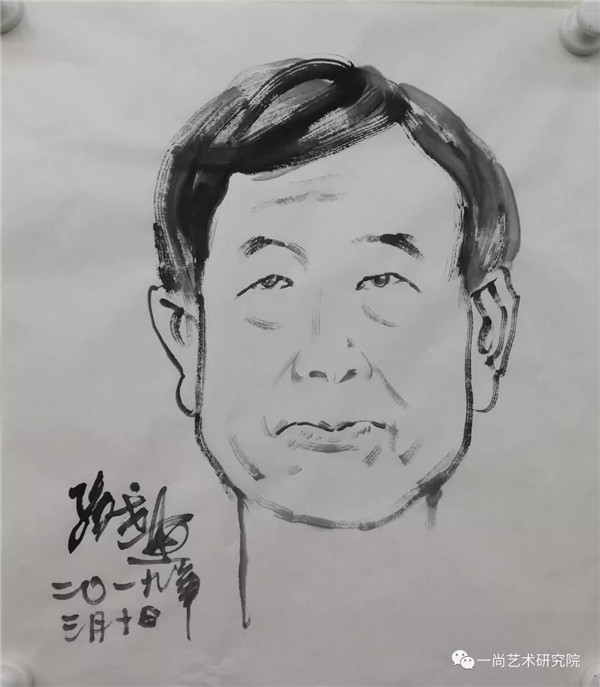 二〇一九年
三月十日
一尚艺术研究院